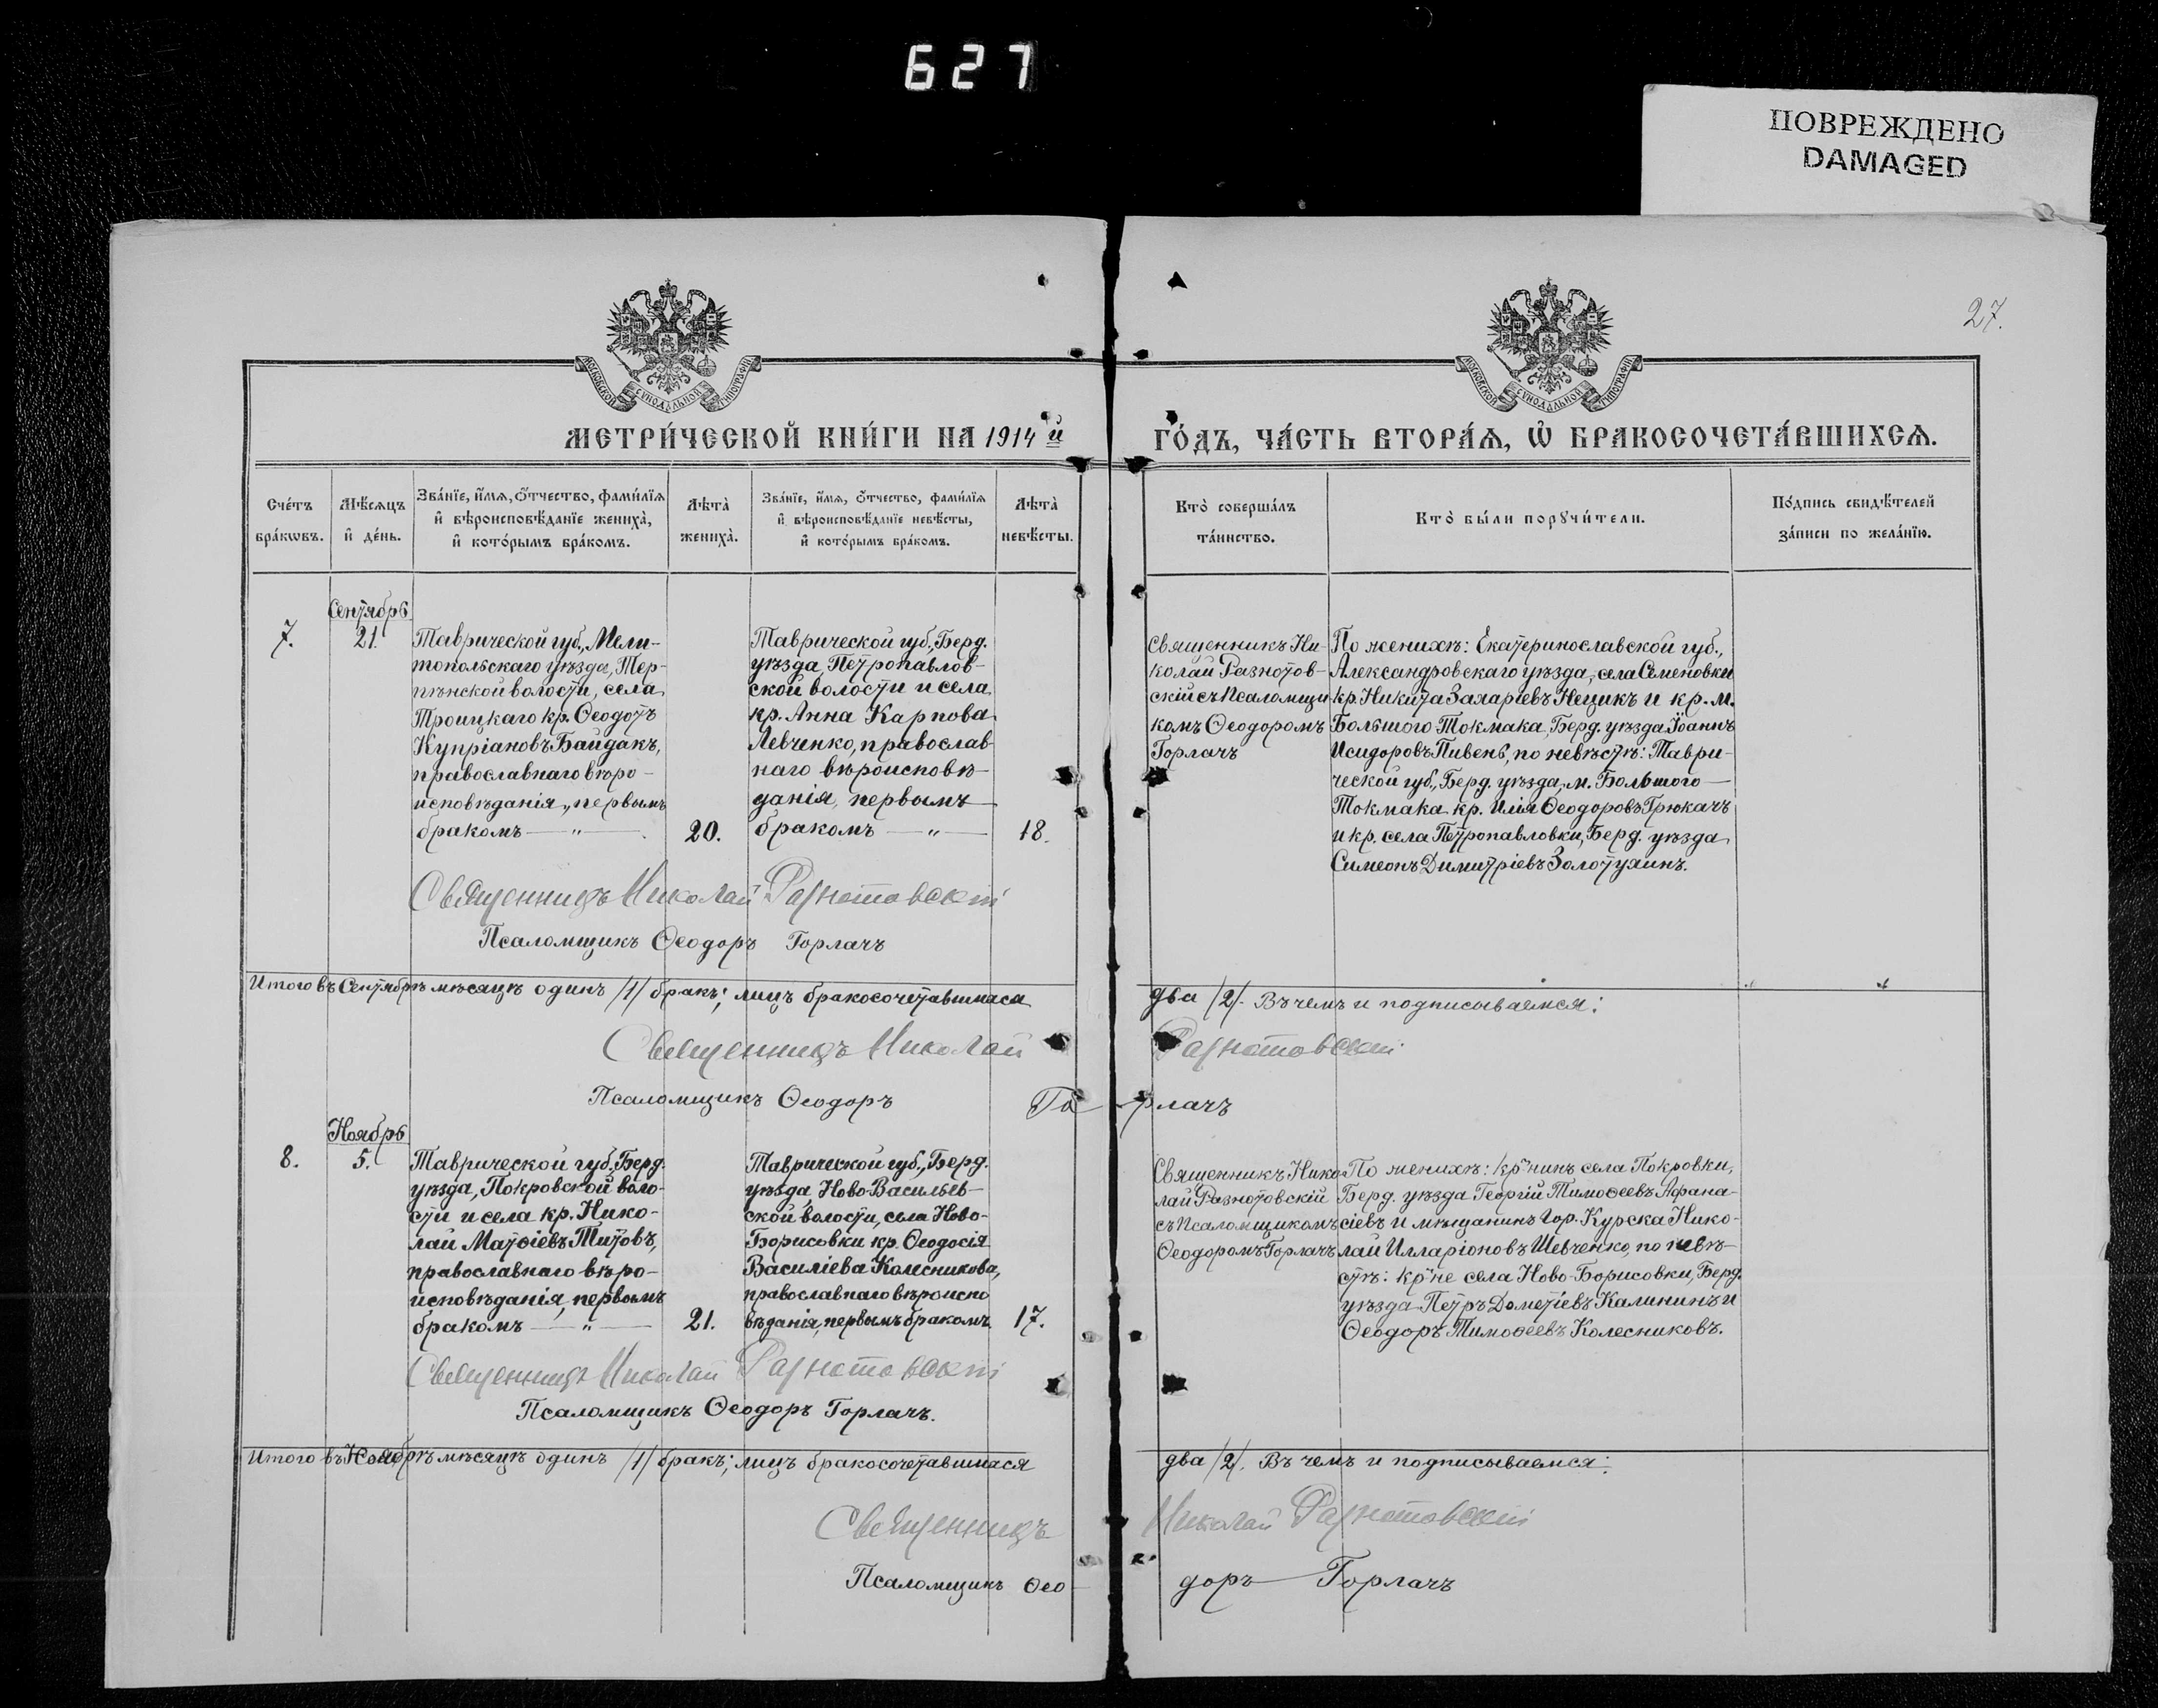 627
ПОВРЕЖДЕНО
DAMAGED
27.
МОСКОВСКОЙ СУНОДАЛЬНОЙ ТИПОГРАФІИ
МОСКОВСКОЙ СУНОДАЛЬНОЙ ТИПОГРАФІИ
МЕТРИ́ЧЕСКОЙ КНИ́ГИ НА 1914 й
ГО́ДЪ, ЧА́СТЬ ВТОРА́Ѧ, Ѽ БРАКОСОЧЕТА́ВШИХСѦ.
Сче́тъ
бра́кѡвъ.
Мѣ́сѧцъ
и҆ де́нь.
Зва́нїе, и҆́мѧ, ѻ҆́тчество, фами́лїѧ
и҆ вѣроисповѣ́данїе жениха̀,
и҆ кото́рымъ бра́комъ.
Лѣ́та̀
жениха̀.
Зва́нїе, и҆́мѧ, ѻ҆́тчество, фами́лїѧ
и҆ вѣроисповѣ́данїе невѣ́сты,
и҆ кото́рымъ бра́комъ.
Лѣ́та̀
невѣ́сты.
Кто̀ соверша́лъ
та́инство.
Кто̀ бы́ли порꙋчи́тели.
По́дпись свидѣ́телей
за́писи по жела́нїю.
Сентябрь
7.
21.
Таврической губ., Мели-
топольскаго уѣзда, Тер-
пѣнской волости, села
Троицкаго кр. Ѳеодотъ
Купріановъ Байдакъ,
православнаго вѣро-
исповѣданія, первымъ
бракомъ — " —
20.
Таврической губ., Берд.
уѣзда, Петропавлов-
ской волости и села
кр. Анна Карпова
Левченко, православ-
наго вѣроисповѣ-
данія, первымъ
бракомъ — " —
18.
Священникъ Ни-
колай Разнотов-
скій съ Псаломщи
комъ Ѳеодоромъ
Горлачъ
По женихѣ: Екатеринославской губ.,
Александровскаго уѣзда, села Семеновки
кр. Никита Захаріевъ Нецикъ и кр. м.
Большого Токмака, Берд. уѣзда Іоаннъ
Исидоровъ Пивень, по невѣстѣ: Таври-
ческой губ., Берд. уѣзда, м. Большого
Токмака кр. Илія Ѳеодоровъ Грюкачъ
и кр. села Петропавловки, Берд. уѣзда
Симеонъ Димитріевъ Золотухинъ.
Священникъ Николай Разнотовскій
Псаломщикъ Ѳеодоръ Горлачъ
Итого въ Сентябрѣ мѣсяцѣ одинъ /1/ бракъ; лицъ бракосочетавшихся
два /2/. Въ чемъ и подписываемся:
Священникъ Николай Разнотовскій
Псаломщикъ Ѳеодоръ Горлачъ
Ноябрь
8.
5.
Таврической губ., Берд.
уѣзда, Покровской воло-
сти и села кр. Нико-
лай Матѳіевъ Титовъ,
православнаго вѣро-
исповѣданія, первымъ
бракомъ — " —
21.
Таврической губ., Берд.
уѣзда, Ново-Васильев-
ской волости, села Ново-
Борисовки кр. Ѳеодосія
Василіева Колесникова,
православнаго вѣроиспо
вѣданія, первымъ бракомъ.
17.
Священникъ Нико
лай Разнотовскій
съ Псаломщикомъ
Ѳеодоромъ Горлачъ
По женихѣ: кр-нинъ села Покровки,
Берд. уѣзда Георгій Тимоѳеевъ Аѳана-
сіевъ и мѣщанинъ гор. Курска Нико-
лай Илларіоновъ Шевченко, по невѣ-
стѣ: кр-не села Ново-Борисовки, Берд.
уѣзда Петръ Дометіевъ Калининъ и
Ѳеодоръ Тимоѳеевъ Колесниковъ.
Священникъ Николай Разнотовскій
Псаломщикъ Ѳеодоръ Горлачъ.
Итого въ Ноябрѣ мѣсяцѣ одинъ /1/ бракъ; лицъ бракосочетавшихся
два /2/. Въ чемъ и подписываемся:
Священникъ Николай Разнотовскій
Псаломщикъ Ѳеодоръ Горлачъ